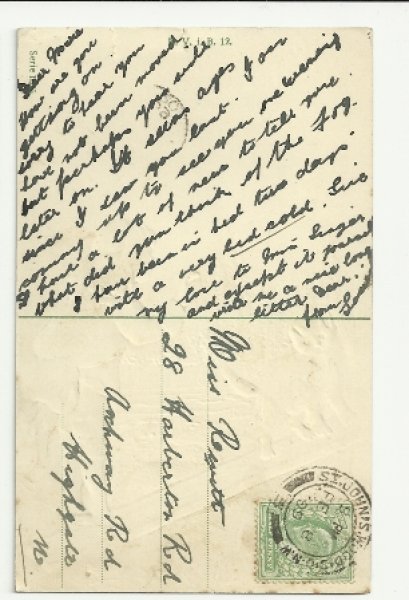 Serie
V. i. B. 12.
Dear
How are you
getting on
sorry to hear you
have not been moved
but perhaps you will
later on. It seems ages
since I saw you last. Your
coming up to see you one evening
I have a lot of news to tell you.
what did you think of the fog.
I have been in bed two days.
with a very bad cold. Give
my love to Miss
and accept it yourself
write me a nice long
letter dear.
from
Miss
28 Harberton Rd
Archway Rd
Highgate
N.
ST. JOHN'S
N.W.